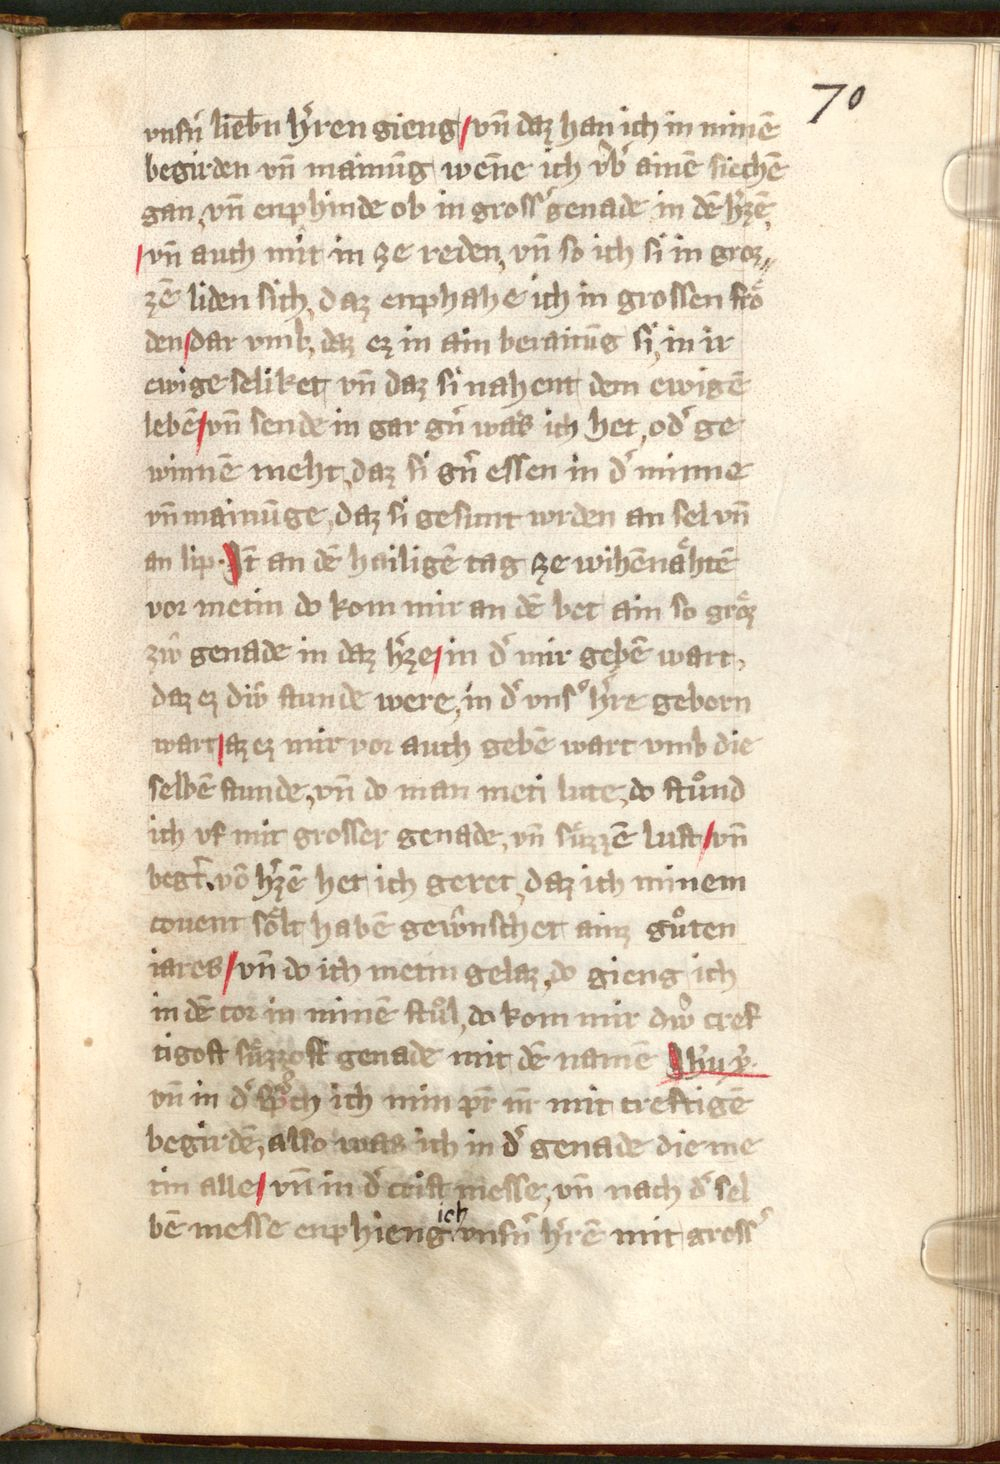 70
vnsn̄ liebn̄ h̾ren gieng / vn̄ daz han ich in minē
begirden vn̄ mainūg wen̄e ich v̂b̾ ainē siechē
gan, vn̄ enphinde ob in gross̾ genade in dē h̾zē,
/ vn̄ auch mit in ze reden, vn̄ so ich si in groz„
zē liden sich, daz enphahe ich in grossen frö
den / dar vmb, daz ez in ain beraitūg si, in ir
ewige seliket vn̄ daz si nahent dem ewigē
lebē / vn̄ sende in gar gn̾ was ich het, od̾ ge
winnē meht, daz si gn̾ essen in d̾ minne
vn̄ mainūge, daz si gesunt wrden an sel vn̄
an lip. It̄ an dē hailigē tag ze wihēnähtē
vor metin do kom mir an dē bet ain so gröz
zw̑ genade in daz h̾ze / in d̾ mir gebē wart,
daz ez diw̑ stunde were, in d̾ vns̾ h̾re geborn
wart / az ez mir vor auch gebē wart vmb die
selbē stunde, vn̄ do man meti lute, do stůnd
ich vf mit grosser genade, vn̄ süzzē lust / vn̄
begir̄. vō h̾zē het ich geret, daz ich minem
couent sölt habē gewnschet ainz gůten
iares / vn̄ do ich metin gelaz, do gieng ich
in dē cor in minē stůl, do kom mir diw̑ cref
tigost süzzost genade mit dē namē Jh̾u xp̾.
vn̄ in d̾ sp̾ch ich min pr̄ nr̄ mit creftigē
begirdē, also was ich in d̾ genade die me
tin alle / vn̄ in d̾ crist messe, vn̄ nach d̾ sel
bē messe enphieng ich vnsn̾ h̾rē mit gross̾